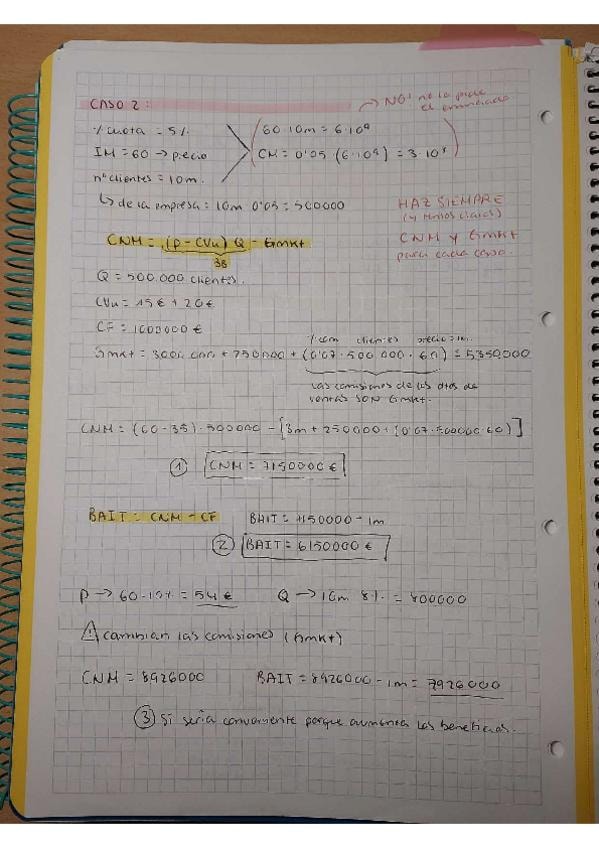 CASO 2:
→ NO! no lo pide el enunciado
% cuota = 5%
60·10m = 6·10⁸
IM = 60 → precio
CM = 0'05·(6·10⁸) = 3·10⁷
nº clientes = 10m.
↳ de la empresa = 10m 0'05 = 500000
HAZ SIEMPRE
CNM = (P - CVu) Q - Gmkt
CNM y Gmkt
para cada caso.
35
Q = 500.000 clientes.
CVu = 15€ + 20€
CF = 1000000 €
% com clientes precio
Gmkt = 3000 000 + 250000 + (0'07·500 000·60) = 5350000
las comisiones de los dtos de
ventas SON Gmkt.
CNM = (60-35)·500000 - [3m + 250000 + (0'07·500000·60)]
① CNM = 7150000 €
BAIT = CNM - CF BAIT = 7150000 - 1m
② BAIT = 6150000 €
P → 60-10% = 54 € Q → 10m 8% = 800000
⚠ cambian las comisiones (Gmkt)
CNM = 8926000 BAIT = 8926000 - 1m = 7926000
③ Si sería conveniente porque aumenta los beneficios.